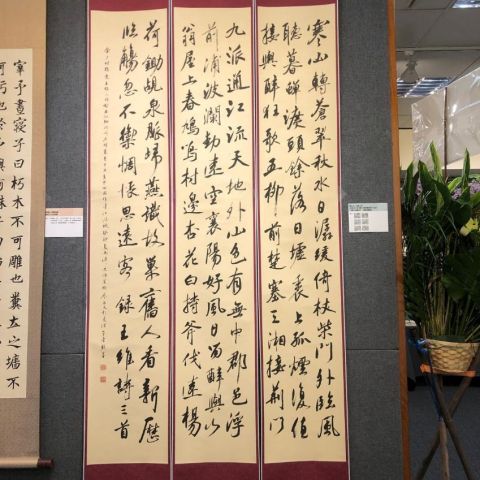 寒山轉蒼翠秋水日潺湲倚杖柴門外臨風
聽暮蟬渡頭餘落日墟裏上孤煙復值
接輿醉狂歌五柳前楚塞三湘接荊門
九派通江流天地外山色有無中郡邑浮
前浦波瀾動遠空襄陽好風日留醉與山
翁屋上春鳩鳴村邊杏花白持斧伐遠楊
荷鋤覘泉脈歸燕識故巢舊人看新歷
臨觴忽不禦惆悵思遠客 錄王維詩三首
宰予晝寢子曰朽木不可雕也糞土之墻不
可杇也於予與何誅子曰始吾於